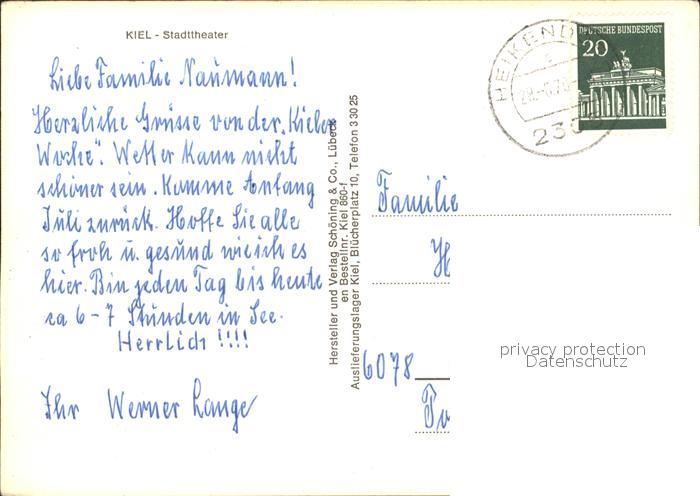 KIEL - Stadttheater
Liebe Familie Naumann!
Herzliche Grüsse von der „Kieler
Woche“. Wetter kann nicht
schöner sein. Komme Anfang
Juli zurück. Hoffe Sie alle
so froh u. gesund wie ich es
hier. Bin jeden Tag bis heute
ca 6-7 Stunden in See.
Herrlich !!!!
Ihr Werner Lange
Hersteller und Verlag Schöning & Co., Lübeck
en Bestellnr. Kiel 860-f
Auslieferungslager Kiel, Blücherplatz 10, Telefon 3 30 25
DEUTSCHE BUNDESPOST
20
HEIKEND
23
Familie
H
6078
privacy protection
Datenschutz